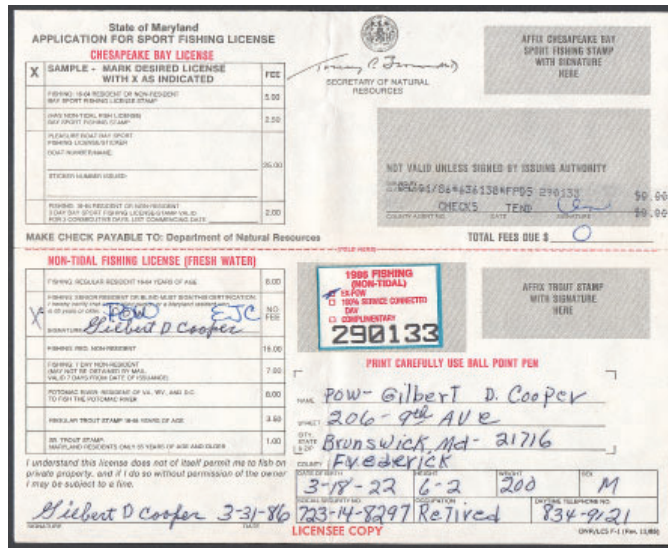 State of Maryland
APPLICATION FOR SPORT FISHING LICENSE
CHESAPEAKE BAY LICENSE
X SAMPLE - MARK DESIRED LICENSE WITH X AS INDICATED FEE
FISHING: 16-64 RESIDENT OR NON-RESIDENT
BAY SPORT FISHING LICENSE STAMP 5.00
BAY SPORT FISHING STAMP 2.50
PLEASURE BOAT BAY SPORT
FISHING LICENSE/STICKER
BOAT NUMBER/NAME:
25.00
STICKER NUMBER ISSUED:
2.00
MAKE CHECK PAYABLE TO: Department of Natural Resources
SECRETARY OF NATURAL
RESOURCES
AFFIX CHESAPEAKE BAY
SPORT FISHING STAMP
WITH SIGNATURE
HERE
NOT VALID UNLESS SIGNED BY ISSUING AUTHORITY
290133 $0.00
CHECKS TEND $0.00
COUNTY AGENT NO. DATE SIGNATURE
TOTAL FEES DUE $ 0
NON-TIDAL FISHING LICENSE (FRESH WATER)
FISHING: REGULAR RESIDENT 16-64 YEARS OF AGE 8.00
X POW EJC NO FEE
SIGNATURE Gilbert D Cooper
FISHING: REG. NON-RESIDENT 15.00
FISHING: 7 DAY NON-RESIDENT
(MAY NOT BE OBTAINED BY MAIL.
VALID 7 DAYS FROM DATE OF ISSUANCE) 7.00
POTOMAC RIVER: RESIDENT OF VA., WV., AND D.C.
TO FISH THE POTOMAC RIVER 8.00
REGULAR TROUT STAMP 16-64 YEARS OF AGE 3.50
SR. TROUT STAMP:
MARYLAND RESIDENTS ONLY 65 YEARS OF AGE AND OLDER 1.00
I understand this license does not of itself permit me to fish on
private property, and if I do so without permission of the owner
I may be subject to a fine.
Gilbert D Cooper 3-31-86
SIGNATURE DATE
1986 FISHING
(NON-TIDAL)
EX-POW
100% SERVICE CONNECTED
DAV
COMPLIMENTARY
290133
AFFIX TROUT STAMP
WITH SIGNATURE
HERE
PRINT CAREFULLY USE BALL POINT PEN
NAME POW- Gilbert D. Cooper
STREET 206 - 9th AVe
CITY, STATE & ZIP Brunswick, Md- 21716
COUNTY Frederick
DATE OF BIRTH HEIGHT WEIGHT SEX
3-18-22 6-2 200 M
SOCIAL SECURITY NO. OCCUPATION DAYTIME TELEPHONE NO.
723-14-8297 Retired 834-9121
LICENSEE COPY